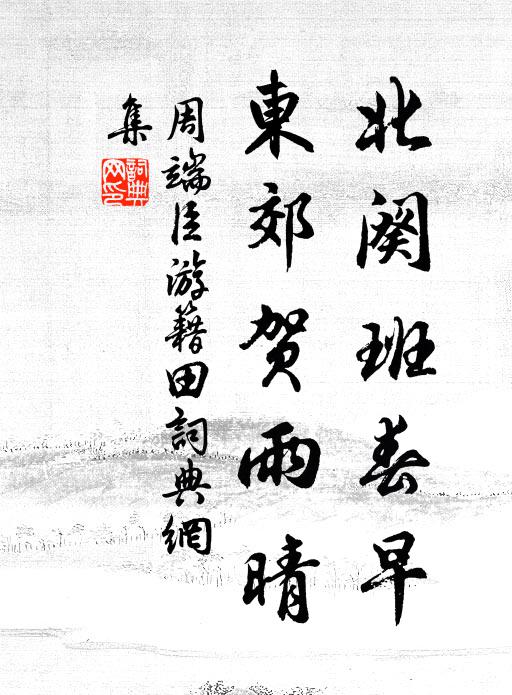 北阙班春早
東郊贺雨晴
周端臣游籍田詞典網
集
詞典
网印